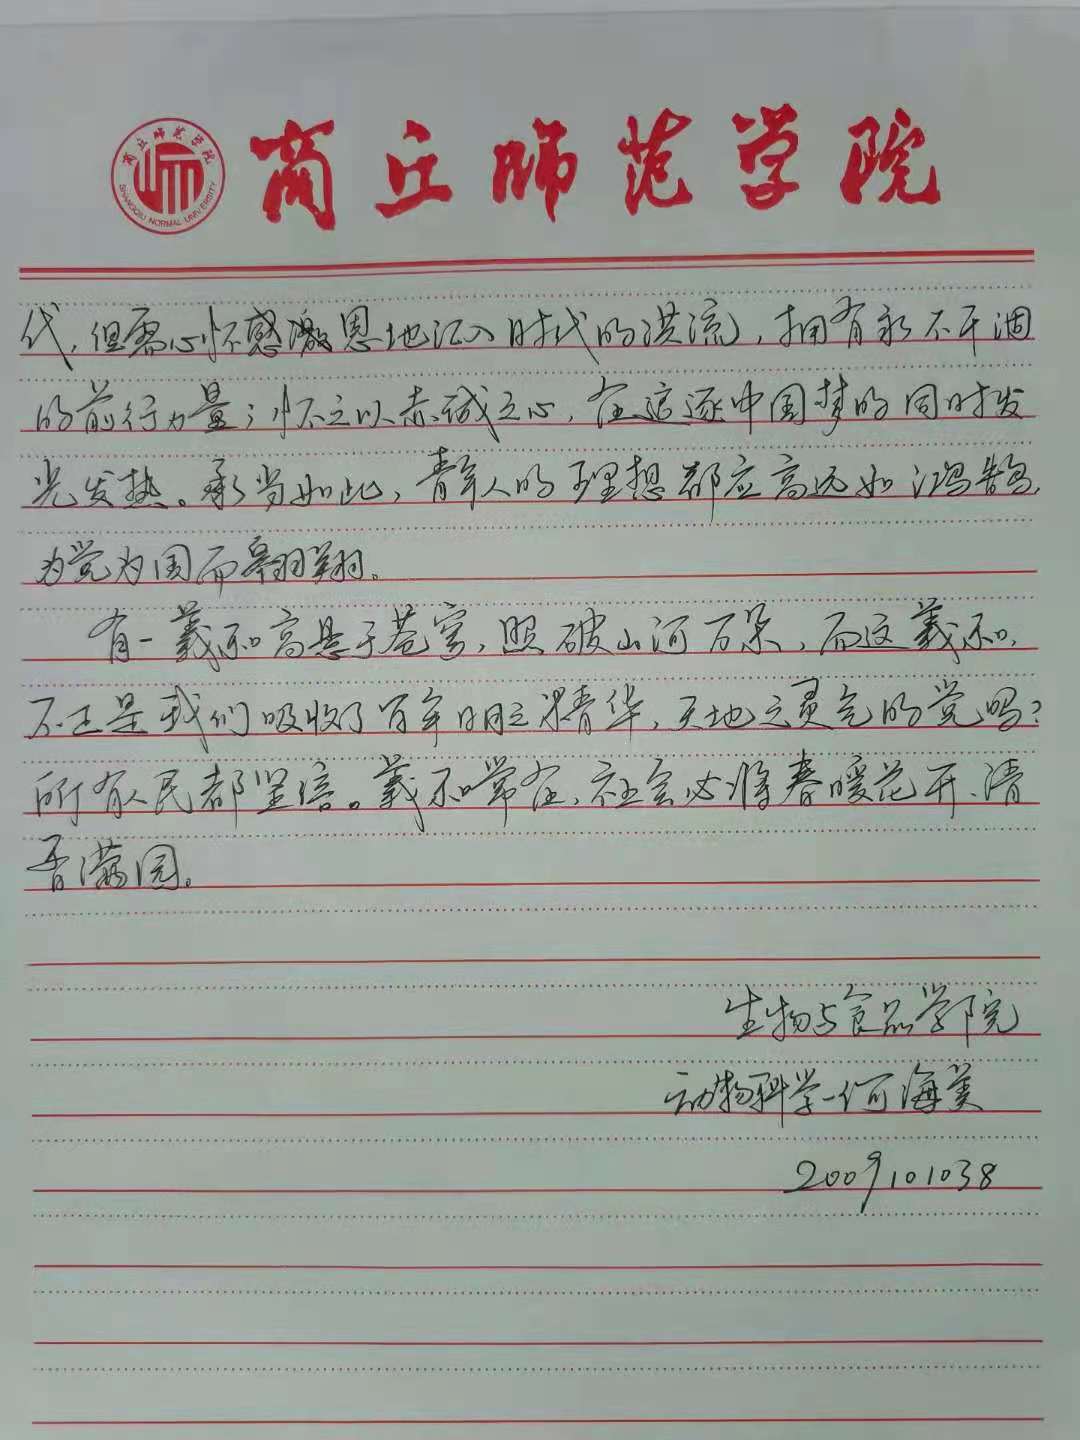 商丘师范学院
商丘师范学院
SHANGQIU NORMAL UNIVERSITY
代，但需心怀感激恩地汇入时代的洪流，拥有永不干涸
的前行力量；怀之以赤诚之心，在追逐中国梦的同时发
光发热。承当如此，青年人的理想都应高远如鸿鹄，
为党为国而翱翔。
有一羲和高悬于苍穹，照破山河万朵，而这羲和，
不正是我们吸收了百年日月之精华，天地之灵气的党吗？
所有人民都坚信。羲和常在，社会必将春暖花开、清
香满园。
生物与食品学院
动物科学-何海美
2009101038